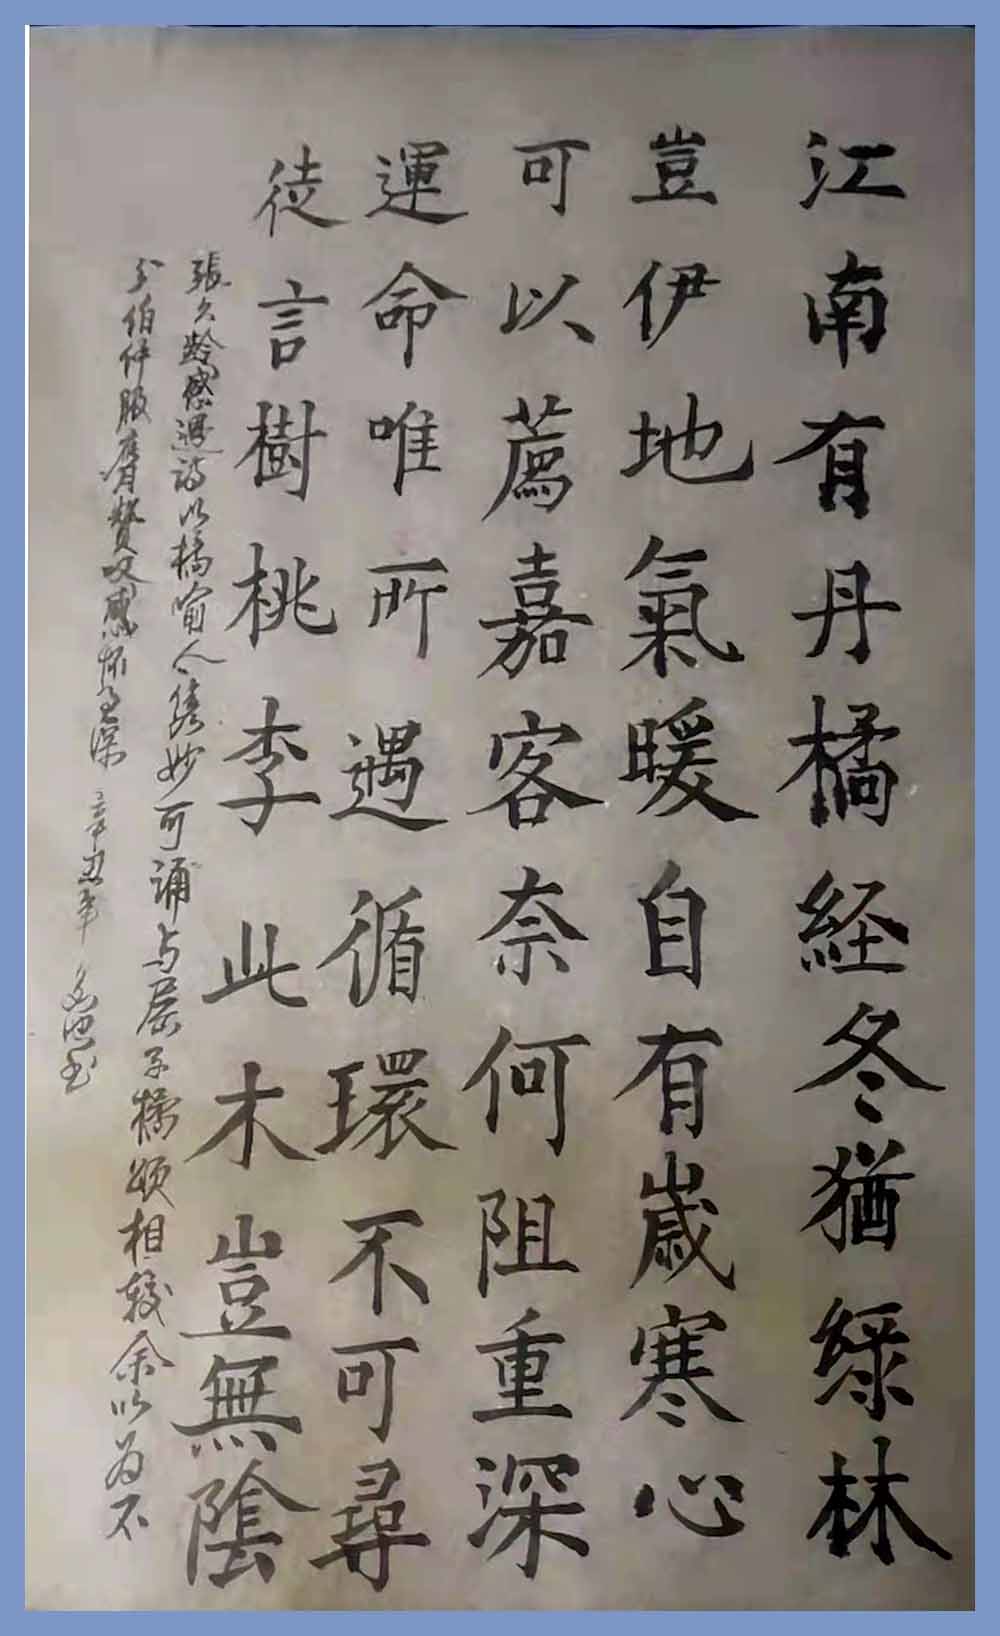 江南有丹橘経冬猶緑林
豈伊地氣暖自有歲寒心
可以薦嘉客奈何阻重深
運命唯所遇循環不可尋
徒言樹桃李此木豈無陰
張久龄感遇诗以橘喻人隽妙可诵与屈子橘颂相较余以为不
分伯仲服膺赞叹感怀至深 辛丑年